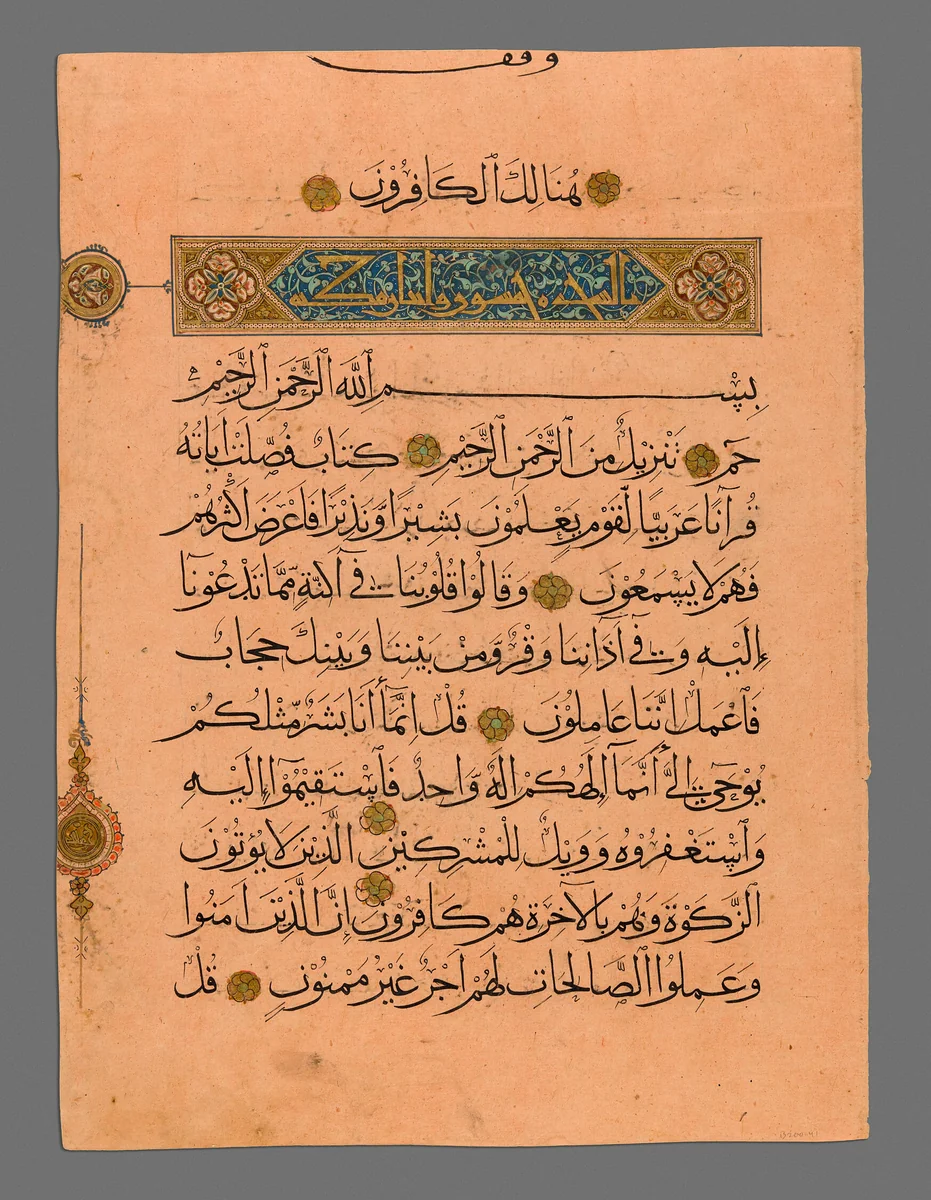 وقف
هُنَالِكَ ٱلْكَافِرُوْنَ
السجدة خمسون واثنان مكية
بِسْمِ ٱللَّهِ ٱلرَّحْمَنِ ٱلرَّحِيْمِ
حٓمٓ تَنْزِيْلٌ مِنَ ٱلرَّحْمَنِ ٱلرَّحِيْمِ كِتَابٌ فُصِّلَتْ اٰيَاتُهُ
قُرْآنًا عَرَبِيًّا لِّقَوْمٍ يَعْلَمُوْنَ بَشِيْرًا وَّنَذِيْرًا فَاَعْرَضَ اَكْثَرُهُمْ
فَهُمْ لَا يَسْمَعُوْنَ وَقَالُوْا قُلُوْبُنَا فِيْ اَكِنَّةٍ مِّمَّا تَدْعُوْنَا
إِلَيْهِ وَفِيْ آذَانِنَا وَقْرٌ وَّمِنْ بَيْنِنَا وَبَيْنِكَ حِجَابٌ
فَٱعْمَلْ اِنَّنَا عَامِلُوْنَ قُلْ اِنَّمَآ أَنَا بَشَرٌ مِّثْلُكُمْ
يُوْحَىٓ اِلَيَّ أَنَّمَآ اِلٰهُكُمْ اِلٰهٌ وَّاحِدٌ فَٱسْتَقِيْمُوْٓا اِلَيْهِ
وَٱسْتَغْفِرُوْهُ وَوَيْلٌ لِلْمُشْرِكِيْنَ الَّذِيْنَ لَا يُؤْتُوْنَ
ٱلزَّكَوٰةَ وَهُمْ بِالْآخِرَةِ هُمْ كَافِرُوْنَ اِنَّ الَّذِيْنَ اٰمَنُوا
وَعَمِلُوا ٱلصَّالِحَاتِ لَهُمْ اَجْرٌ غَيْرُ مَمْنُوْنٍ قُلْ